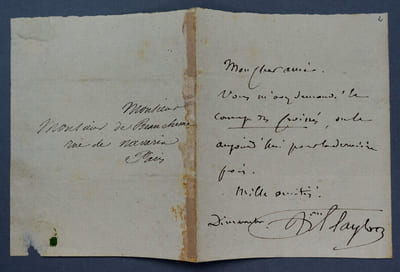 Monsieur
Monsieur de
rue de navarin
Paris
2
Mon cher ami.
Vous m'avez demandé le
camp des Croisés, on le
aujourd'hui pour la dernière
fois.
Mille amitiés.
Dimanche
Bon Taylor